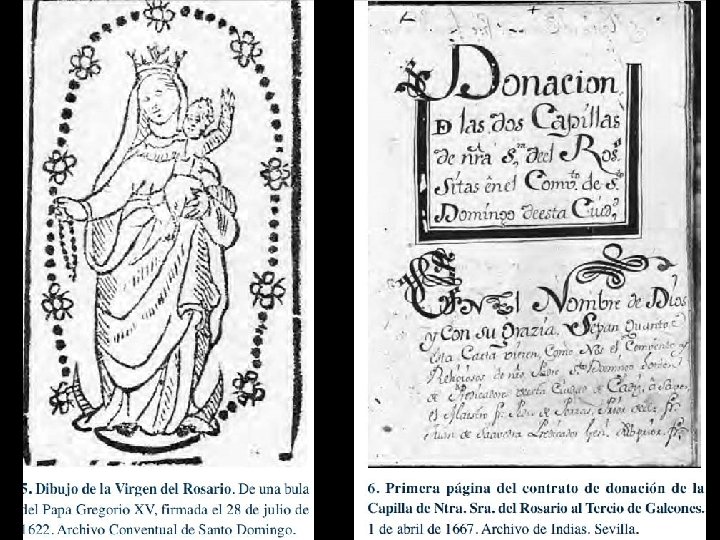 5. Dibujo de la Virgen del Rosario. De una bula
del Papa Gregorio XV, firmada el 28 de julio de
1622. Archivo Conventual de Santo Domingo.
Donacion
D las dos Capillas
de nrã Sª deel Rosº
sitas ênel Comvto de Sto
Domingo deesta Ciudª
En el Nombre de Dios
y Con su grazia. Sepan Quantos
esta Carta vieren, Como Nos el Convento y
Religiosos de nro Padre Sto Domingo horden
de Predicadores deesta Ciudad de Cadiz, a saver
el Maestro fr
Juan de Saavedra Predicador
6. Primera página del contrato de donación de la
Capilla de Ntra. Sra. del Rosario al Tercio de Galeones.
1 de abril de 1667. Archivo de Indias. Sevilla.